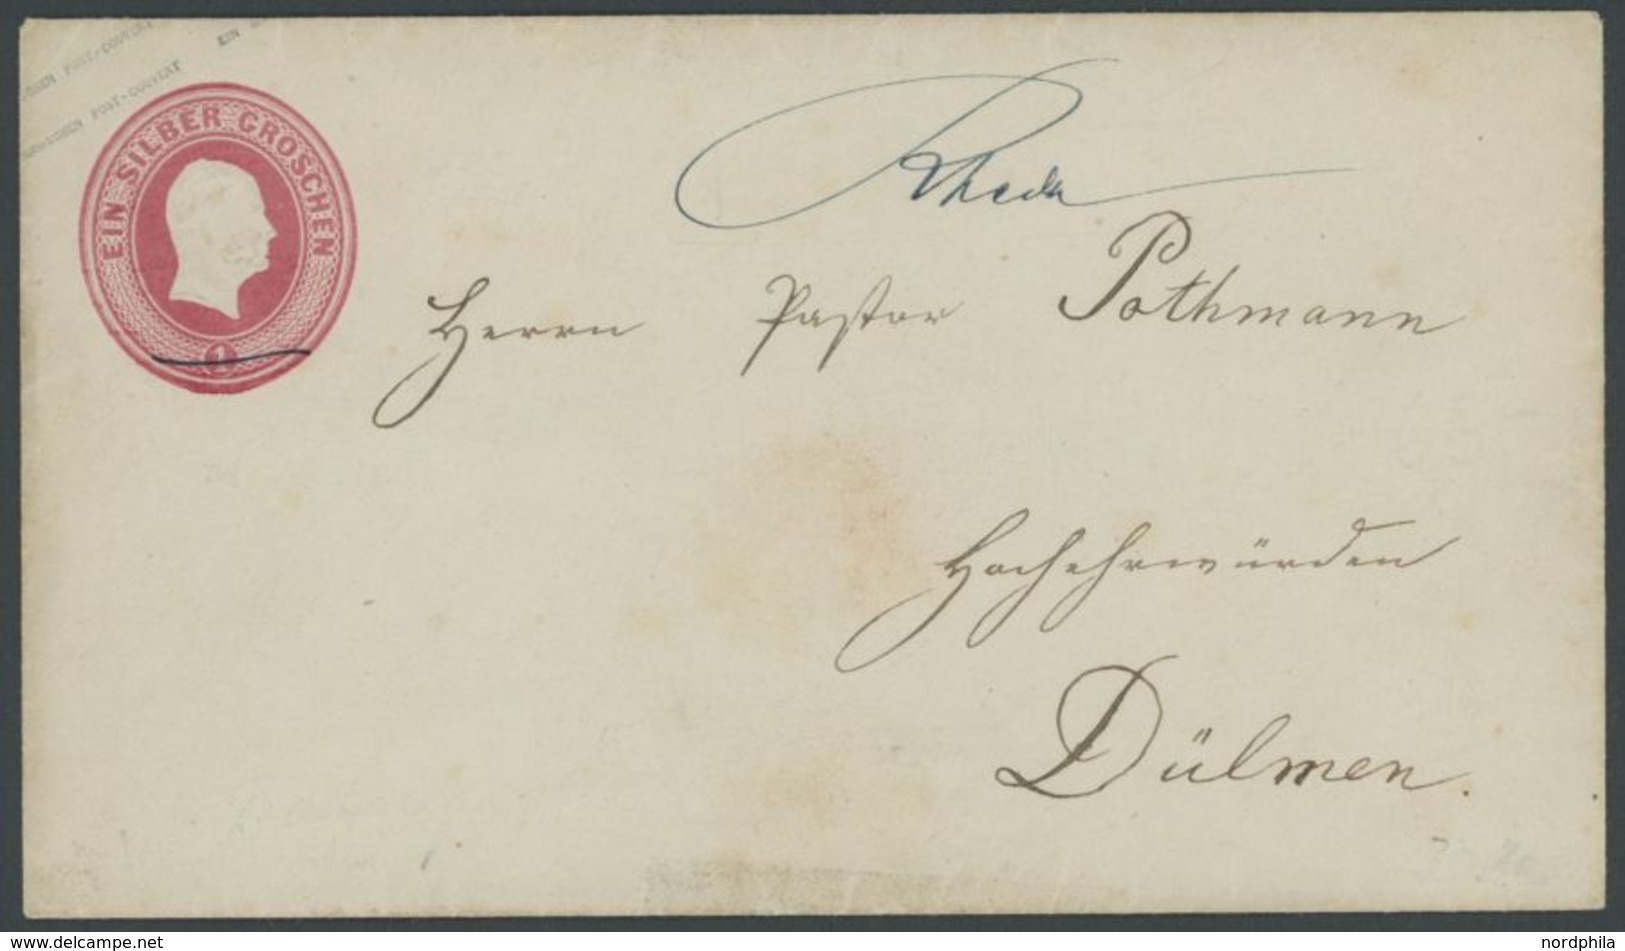 POST-COUVERT
POST-COUVERT EIN
EIN SILBER GROSCHEN
1
Rheda
Herrn Pastor Pothmann
Hochehrwürden
Dülmen.
www.delcampe.net
nordphila